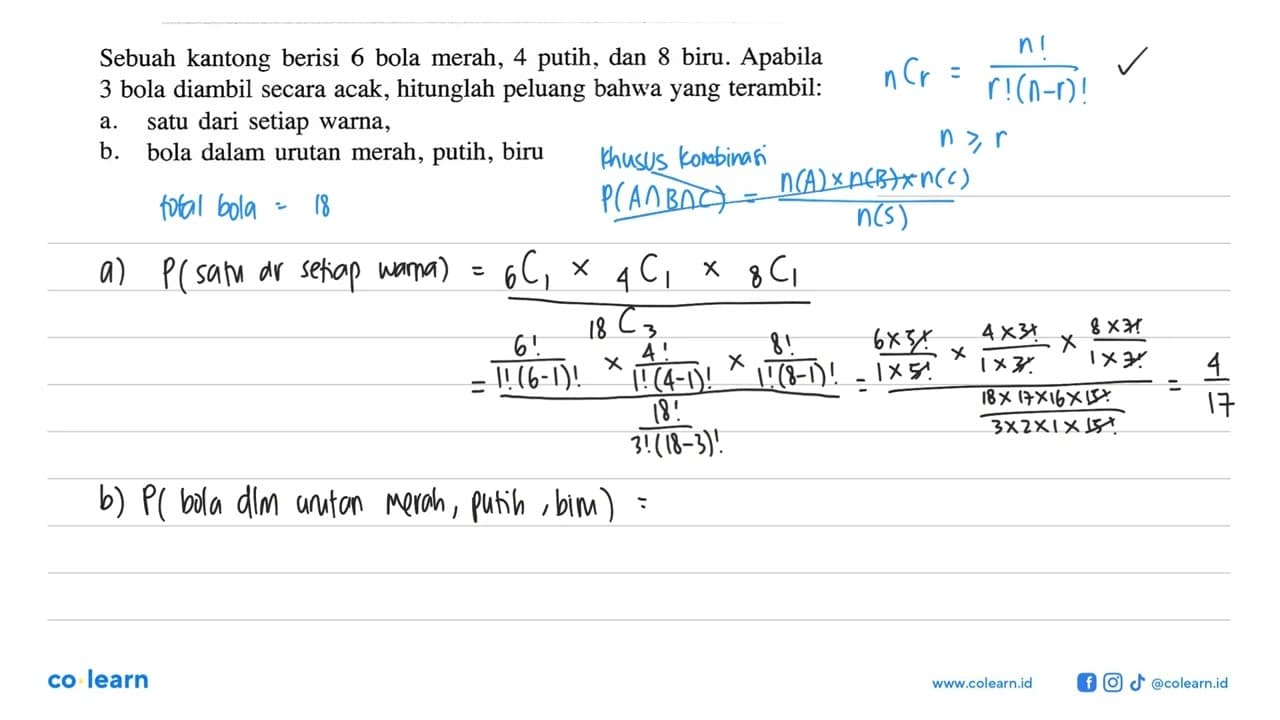 Sebuah kantong berisi 6 bola merah, 4 putih, dan 8 biru. Apabila
3 bola diambil secara acak, hitunglah peluang bahwa yang terambil:
a. satu dari setiap warna,
b. bola dalam urutan merah, putih, biru
nCr = n! / r!(n-r)! ✓
n ≥ r
total bola = 18
khusus kombinasi
P(A∩B∩C) = n(A)×n(B)×n(C) / n(S)
a) P(satu dr setiap warna) = 6C1 × 4C1 × 8C1
18C3
= 6!/1!(6-1)! × 4!/1!(4-1)! × 8!/1!(8-1)! = 6×5!/1×5! × 4×3!/1×3! × 8×7!/1×7! = 4/17
18!/3!(18-3)! 18×17×16×15!/3×2×1×15!
b) P( bola dlm urutan merah, putih, biru) =
co learn
www.colearn.id
@colearn.id